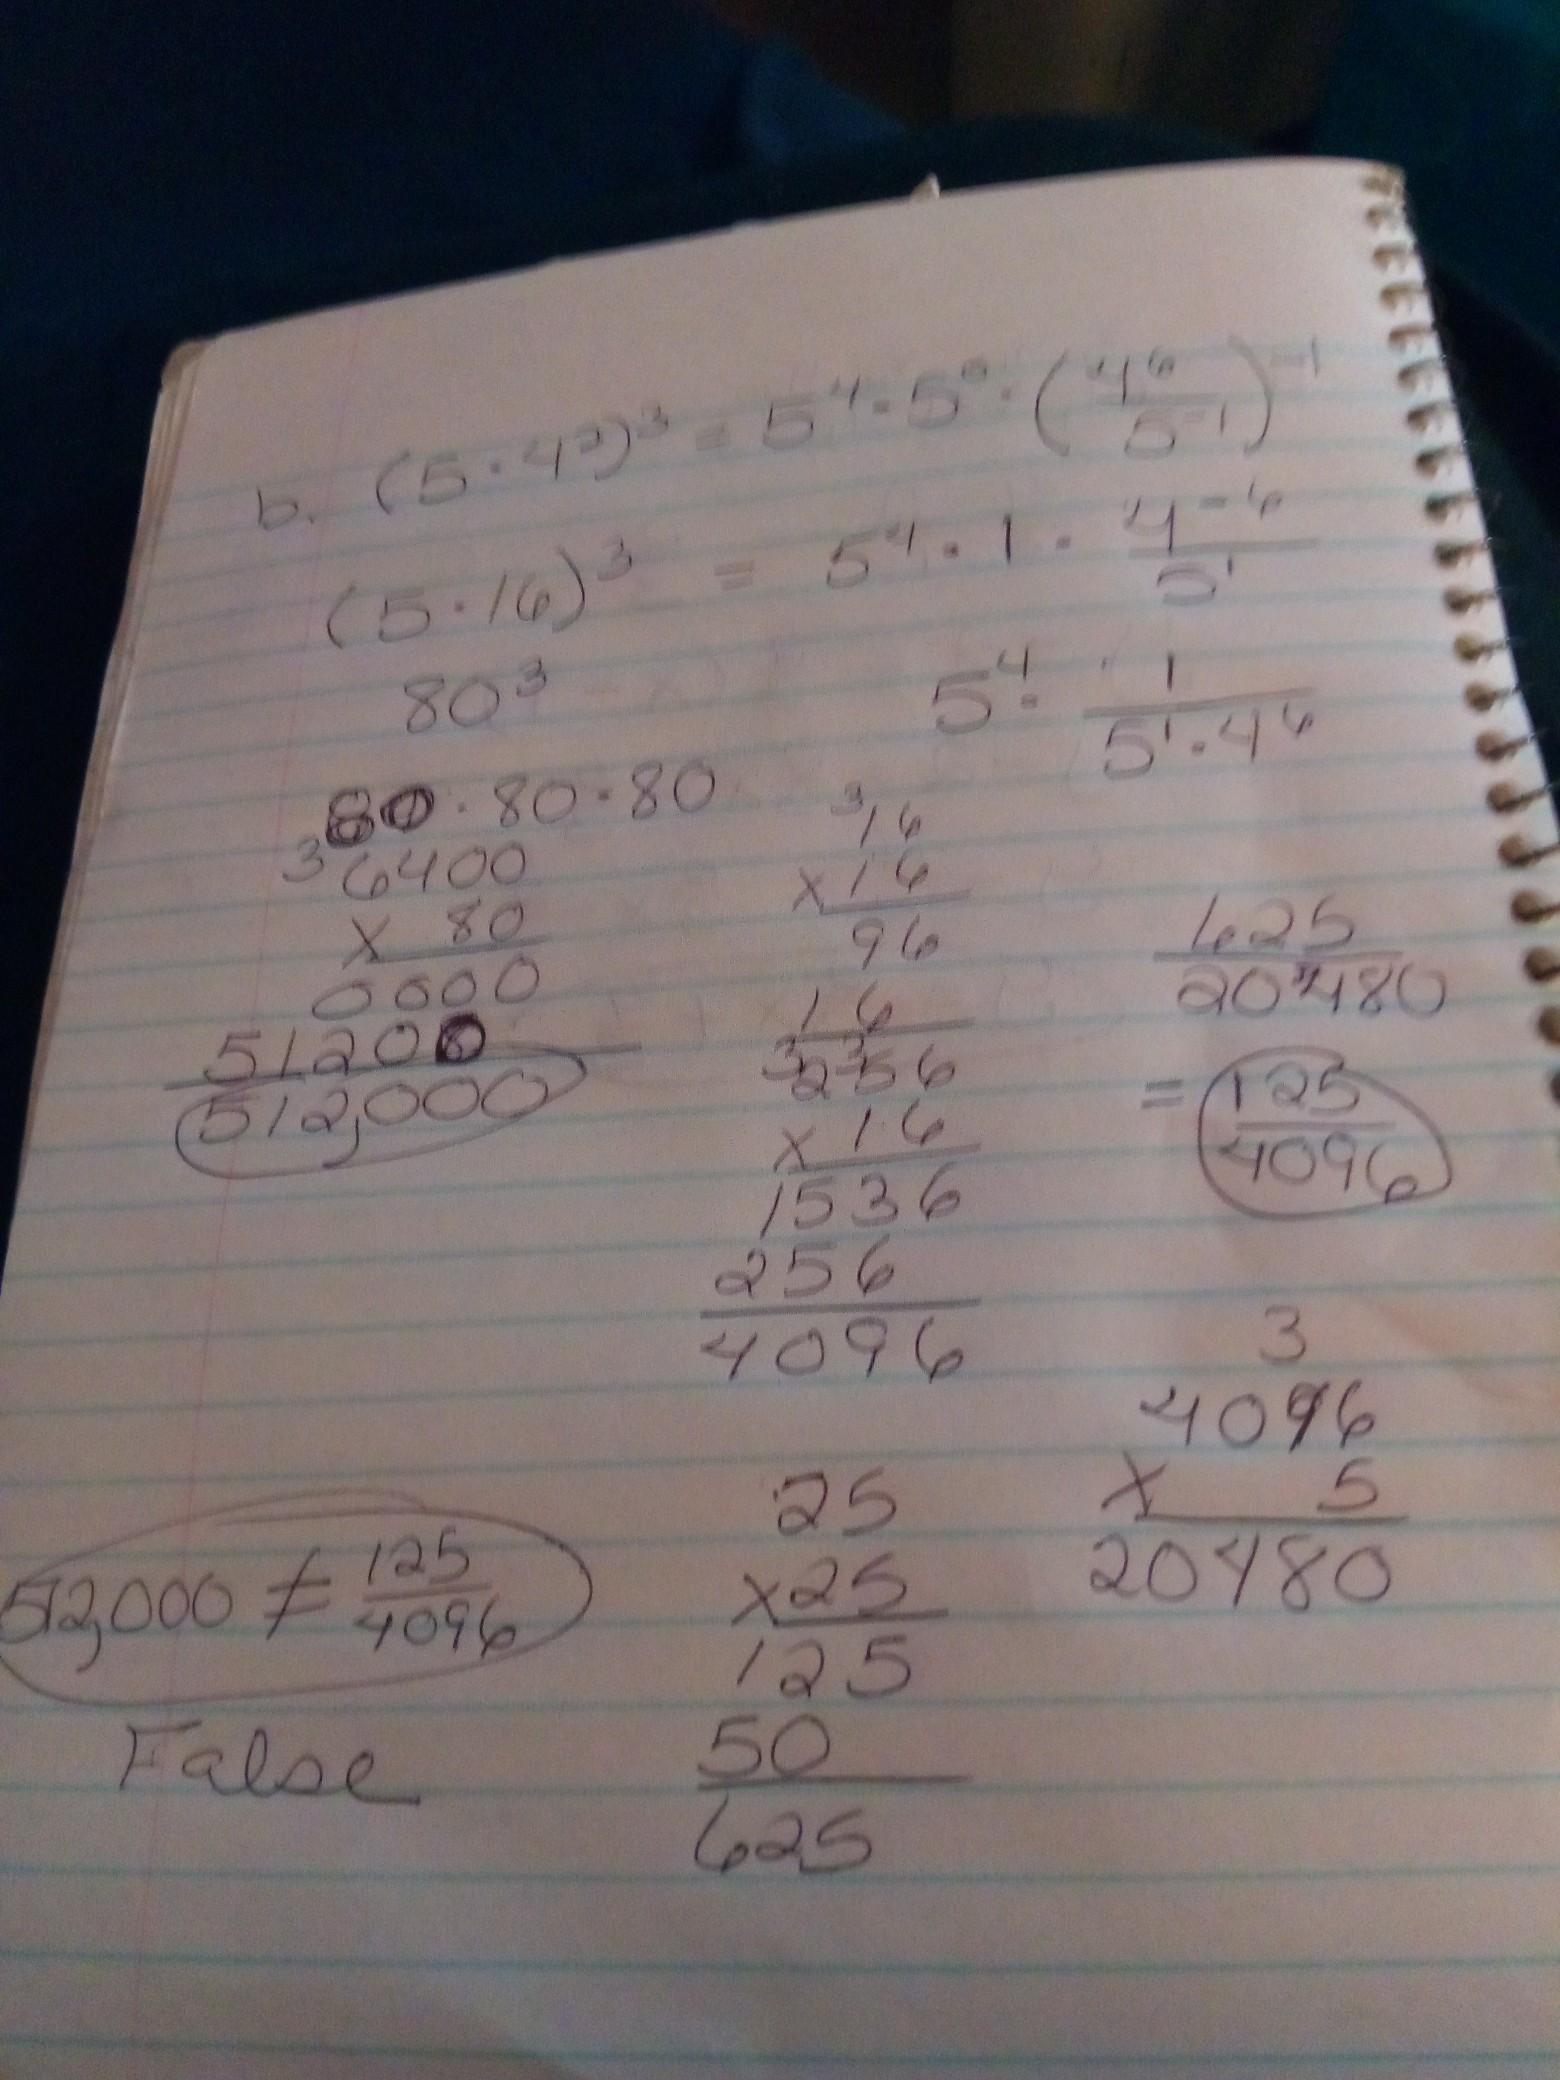 b. (5 · 4²)³ = 5⁴ · 5⁰ · (4⁶/5⁻¹)⁻¹
(5 · 16)³ = 5⁴ · 1 · 4⁻⁶/5¹
80³
5⁴ · 1/(5¹ · 4⁶)
80 · 80 · 80
3
6400
x 80
0000
51200
512,000
3
16
x 16
96
16
3 3
256
x 16
1536
256
4096
625/20480
= 125/4096
3
4096
x 5
20480
25
x 25
125
50
625
512,000 ≠ 125/4096
False